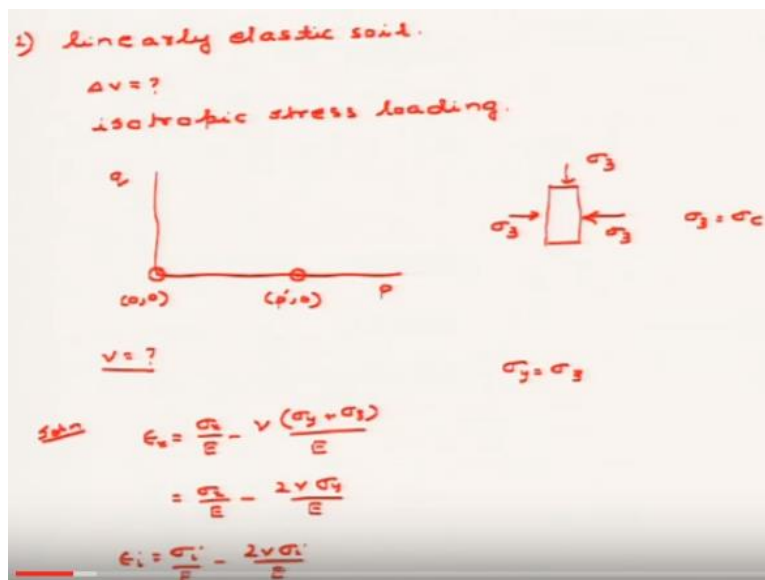 1) linearly elastic soil.
Δv = ?
isotropic stress loading.
q
σ3
σ3
σ3
σ3 = σc
(0,0)
(p',0)
p
v = ?
σy = σ3
Soln
ϵx = σx/E - ν(σy + σ3)/E
= σx/E - 2νσy/E
ϵi = σi/E - 2νσi/E